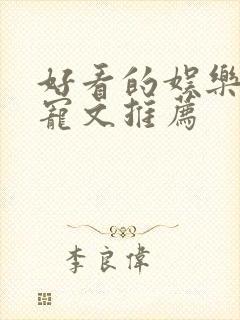 好看的娛樂
寵文推薦
李良偉